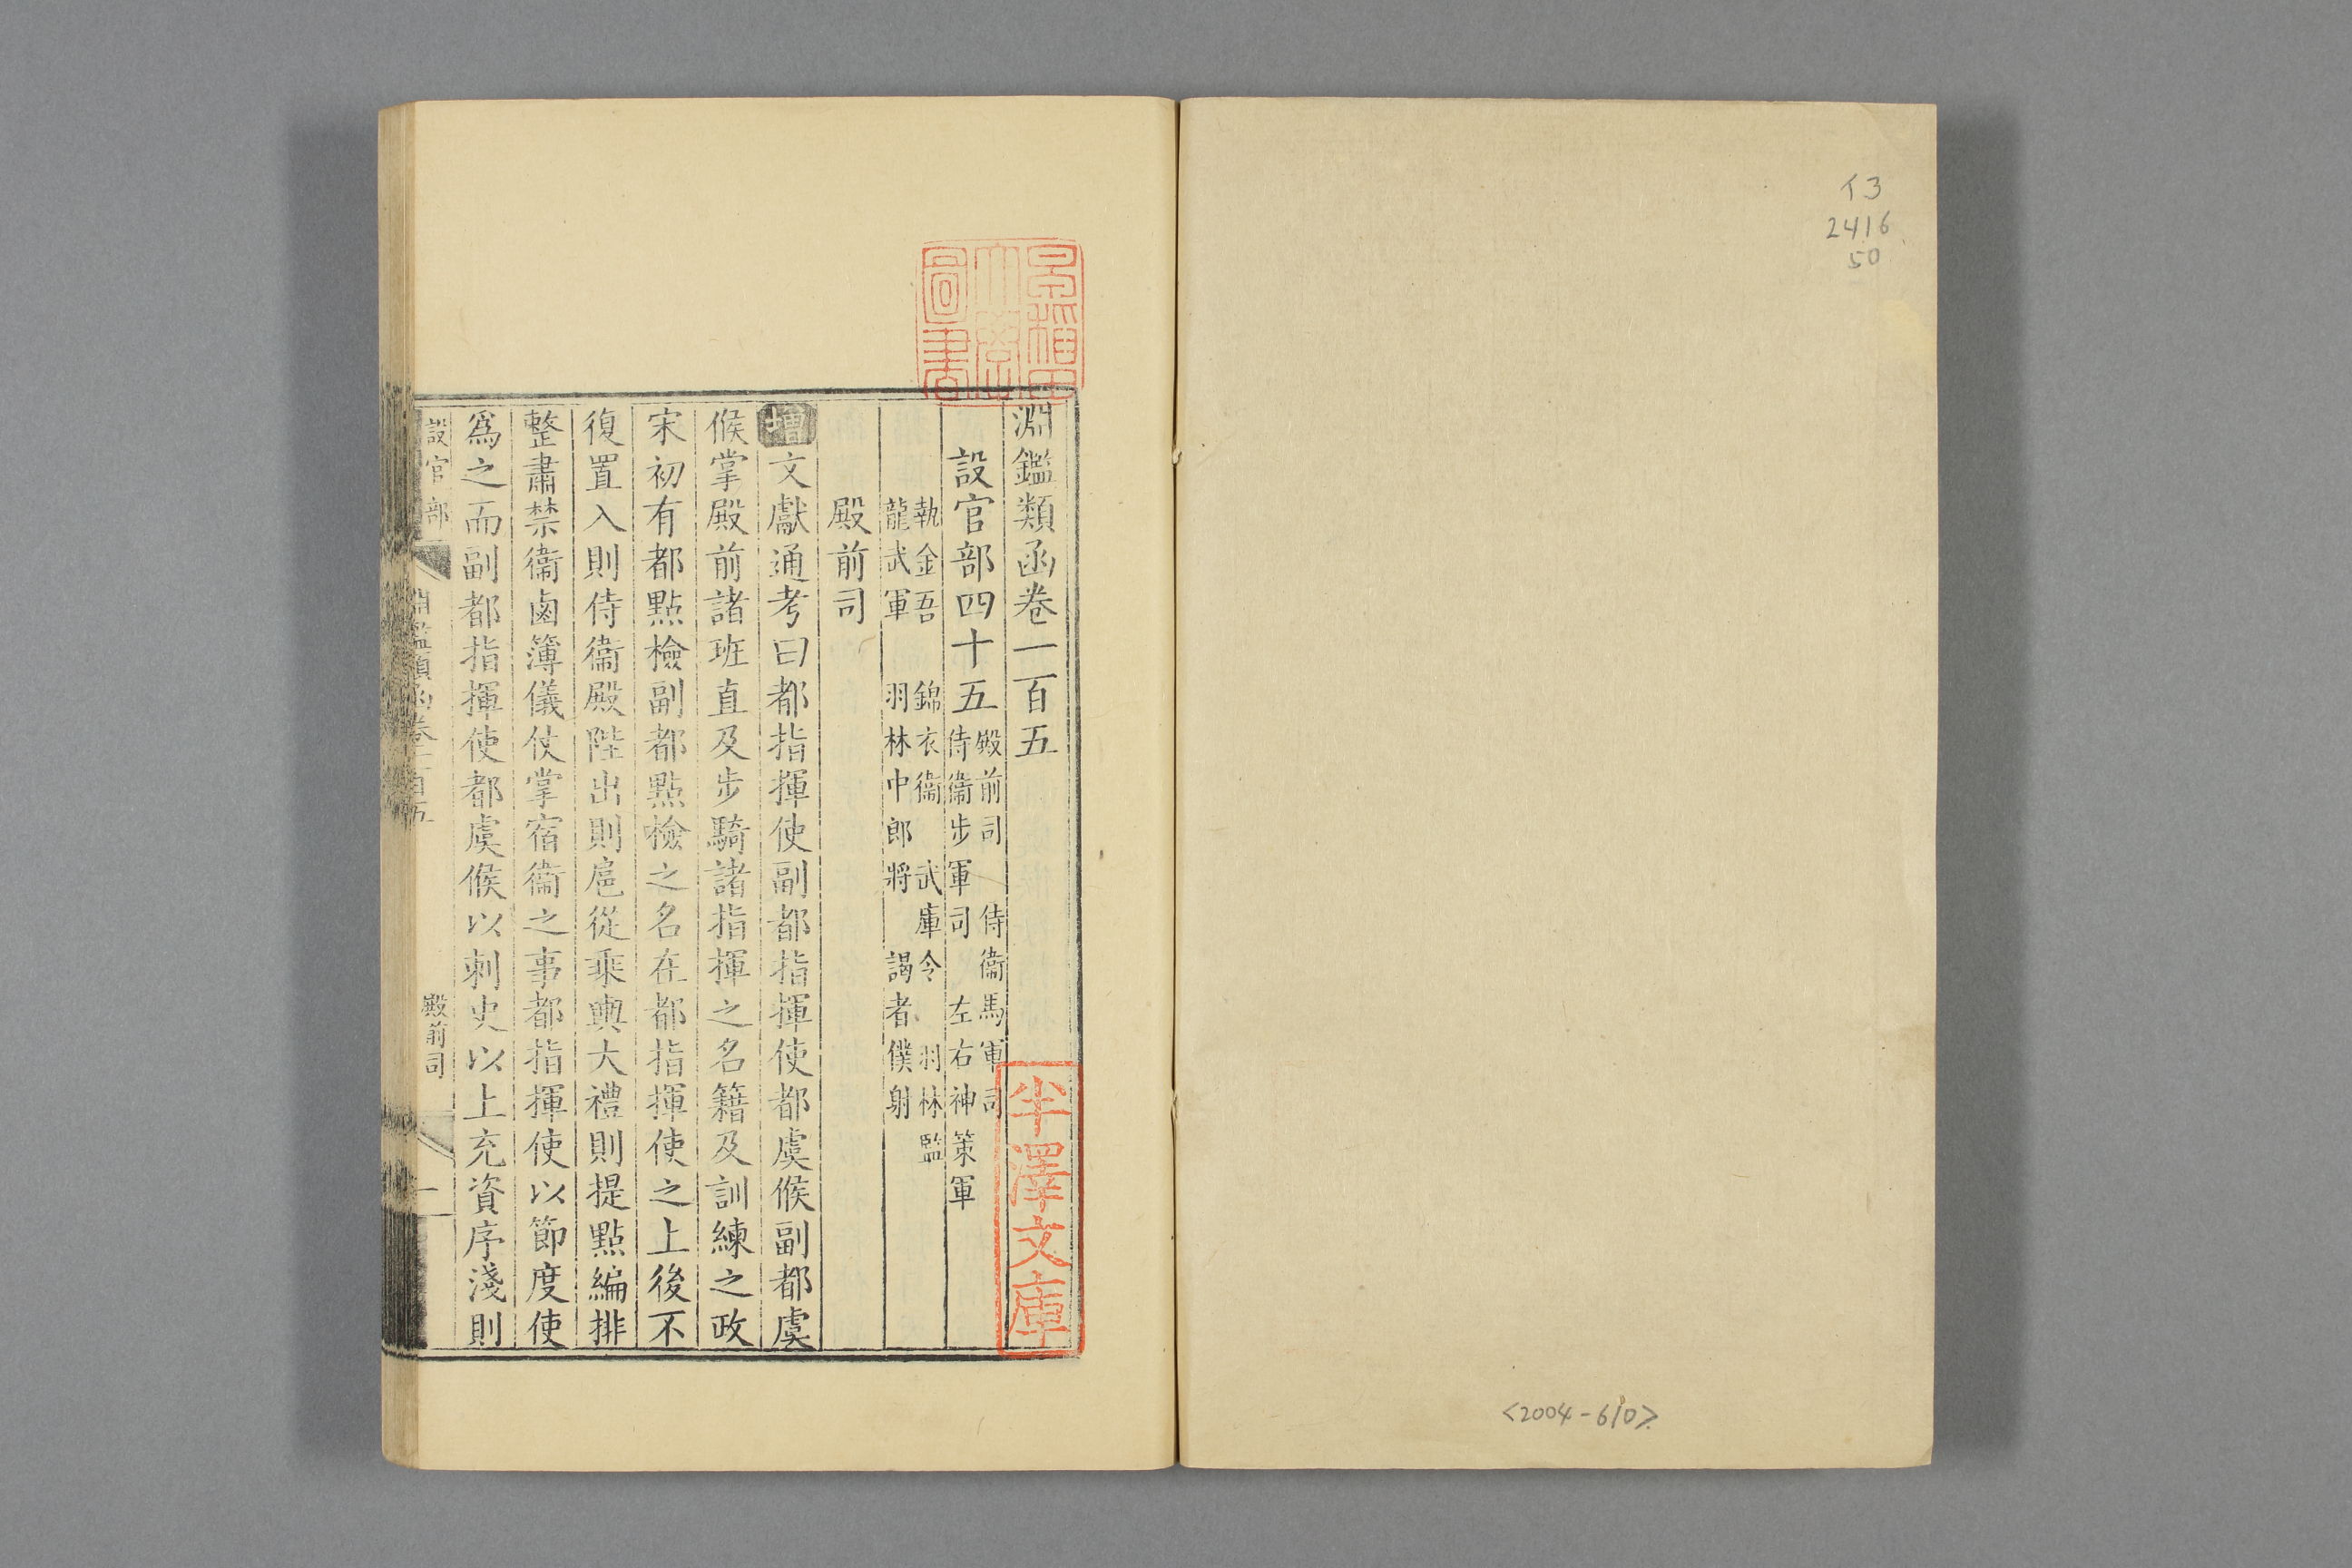 イ3
2416
50
<2004-610>
淵鑑類函卷一百五
設官部四十五
殿前司 侍衞馬軍司
侍衞步軍司 左右神策軍
執金吾 錦衣衞 武庫令 羽林監
龍武軍 羽林中郎將 謁者僕射
殿前司
增文獻通考曰都指揮使副都指揮使都虞候副都虞
候掌殿前諸班直及步騎諸指揮之名籍及訓練之政
宋初有都點檢副都點檢之名在都指揮使之上後不
復置入則侍衞殿陛出則扈從乘輿大禮則提點編排
整肅禁衞鹵簿儀仗掌宿衞之事都指揮使以節度使
爲之而副都指揮使都虞候以刺史以上充資序淺則
設官部
淵鑑類函卷一百五
殿前司
一
圖書
半澤文庫